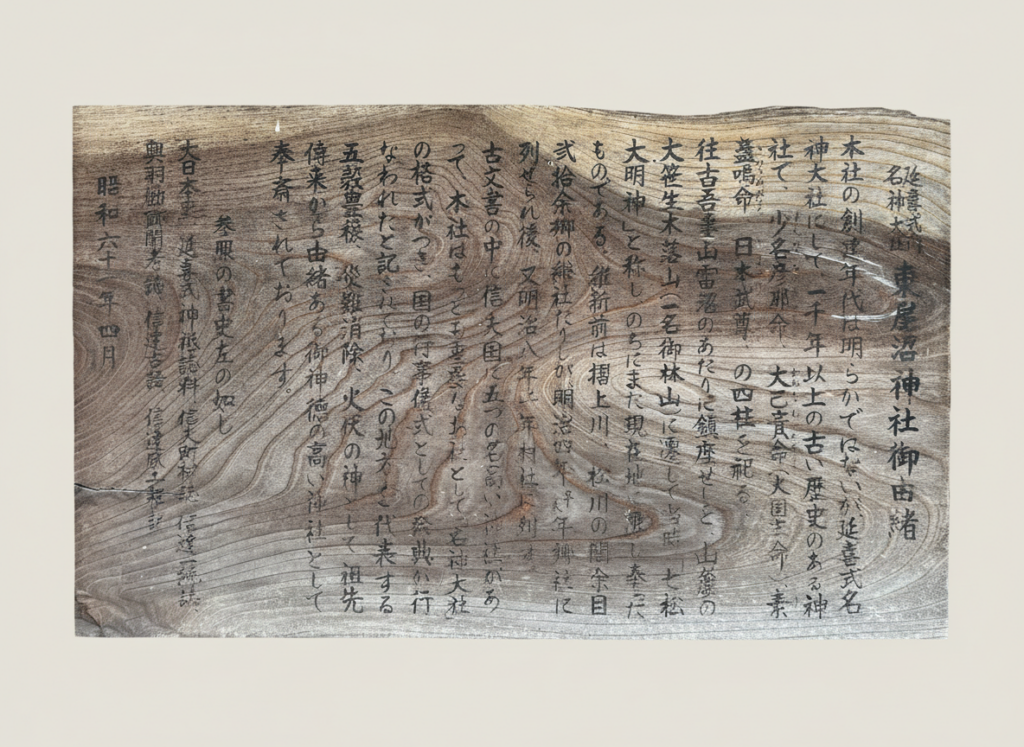 延喜式内
名神大社
東屋沼神社御由緒
本社の創建年代は明らかではないが延喜式名
神大社にして一千年以上の古い歴史のある神
社で、少名彦那命、大己貴命(大国主命)、素
盞嗚命、日本武尊、の四柱を祀る。
往古吾妻山雷沼のあたりに鎮座せしを、山麓の
大笹生木落山(一名御林山)に遷して当時、七松
大明神」と称し、のちにまた現在地に遷し奉った
ものである。維新前は摺上川、松川の間余目
弐拾余郷の総社たりしが明治四年 郷社に
列せられ後、又明治八年 村社に列す
古文書の中に信夫国に五つの名高い があ
って、本社はもっとも として名神大社
の格式がつき、国の行事儀式としての祭典が行
なわれたと記されており、この地方を代表する
五穀豊穣、災難消除、火伏の神として、祖先
伝来から由緒ある御神徳の高い神社として
奉斎されております。
参照の書史左の如し
大日本史 延喜式 神祇誌料 信夫町村誌 信達一統誌
信達古語
昭和六十 年四月